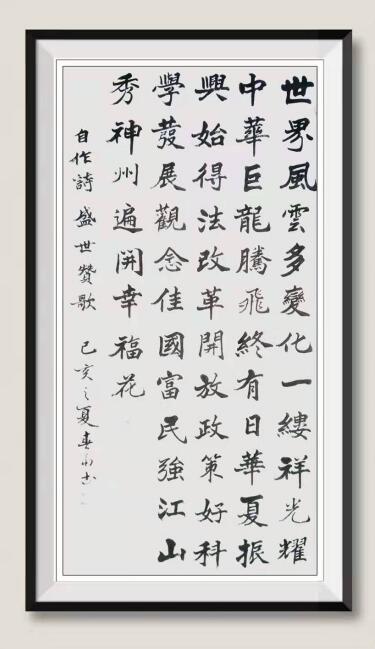 世界風雲多變化一縷祥光耀
中華巨龍騰飛終有日華夏振
興始得法改革開放政策好科
學發展觀念佳國富民強江山
秀神州遍開幸福花
自作詩盛世贊歌 己亥之夏春书